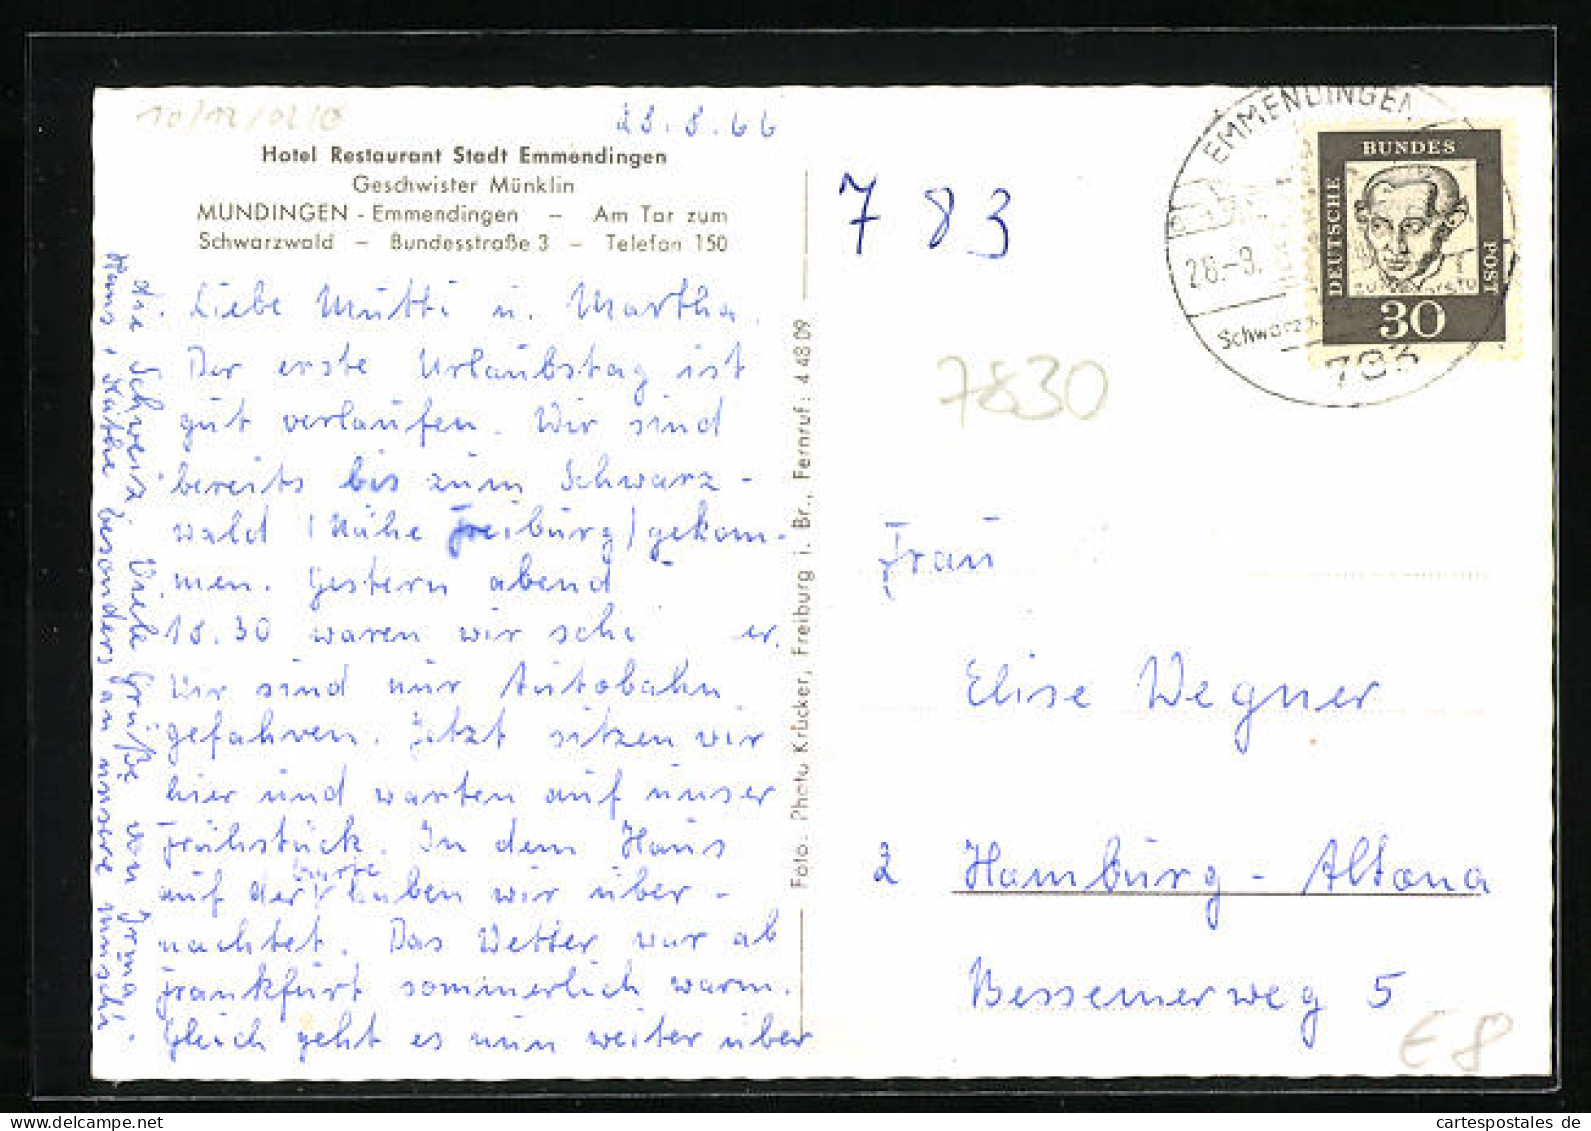 10/12/02/C
28.8.66
Hotel Restaurant Stadt Emmendingen
Geschwister Münklin
MUNDINGEN - Emmendingen – Am Tor zum
Schwarzwald – Bundesstraße 3 – Telefon 150
Liebe Mutti u. Martha.
Der erste Urlaubstag ist
gut verlaufen. Wir sind
bereits bis zum Schwarz-
wald (Nähe Freiburg) gekom-
men. Gestern abend
18.30 waren wir
Wir sind nur Autobahn
gefahren. Jetzt sitzen wir
hier und warten auf unser
Frühstück. In dem Haus
auf der Karte haben wir über-
nachtet. Das Wetter war ab
Frankfurt sommerlich warm.
Gleich geht es nun weiter über
die Schweiz. Viele Grüße von Irma
Hans, Käthe besonders an unsere
Foto: Photo Krücker, Freiburg i. Br., Fernruf: 4 48 09
7 83
7830
EMMENDINGEN
26.-9.
783
DEUTSCHE
BUNDES
POST
30
Frau
Elise Wegner
2 Hamburg-Altona
Bessemerweg 5
E 8
cartespostales.de